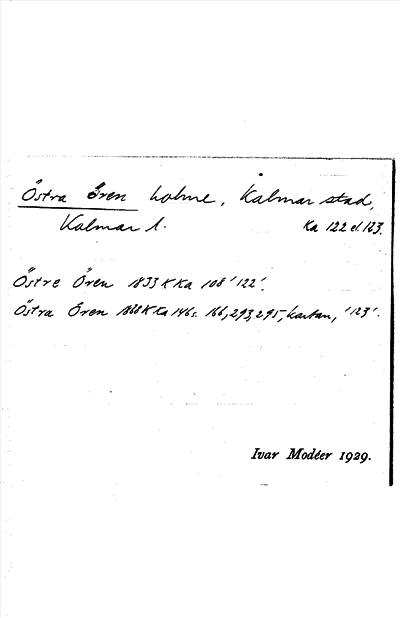 Östra Ören holme, Kalmar stad,
Kalmar l. Ka 122 el. 123.
Östre Ören 1833 K Ka 108 '122'.
Östra Ören 1868 K Ka 146 s. 166, 293, 295, kartan, '123'.
Ivar Modéer 1929.